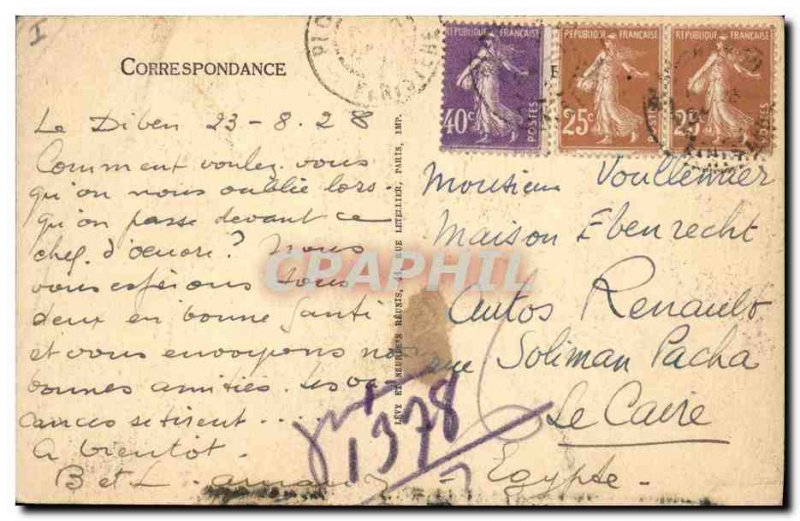 I
CORRESPONDANCE
Le Diben 23-8.28
Comment voulez vous
qu'on nous oublie lors-
qu'on passe devant ce
chef. d'oeuvre? Nous
vous espérons tous
deux en bonne santé
et vous envoyons nos
bonnes amitiés. les va
cances se tirent...
A bientôt.
B et L.
LÉVY ET NEURDEIN RÉUNIS, 44, RUE LETELLIER, PARIS, IMP.
REPUBLIQUE FRANÇAISE
40c
POSTES
REPUBLIQUE FRANÇAISE
25c
POSTES
REPUBLIQUE FRANÇAISE
25c
POSTES
FINISTERE
Monsieur Voullemier
Maison Ebenrecht
Autos Renault
rue Soliman Pacha
Le Caire
Egypte.
1378
CPARPHIL